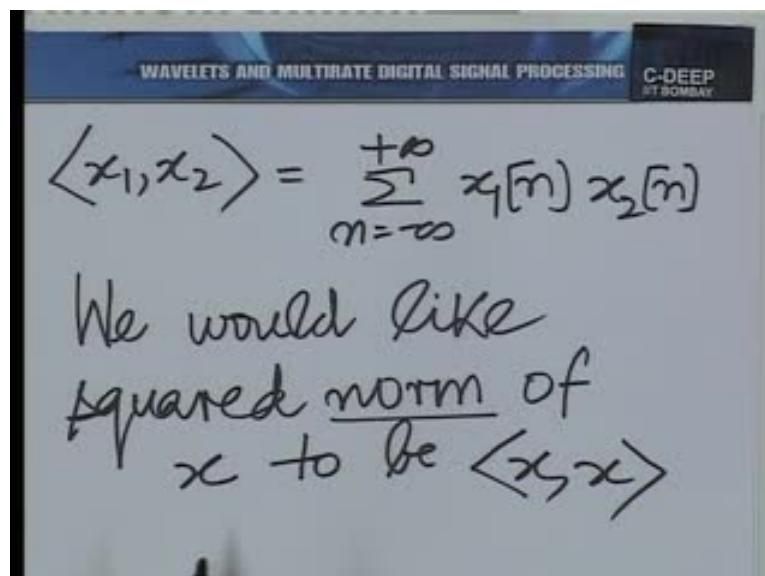 WAVELETS AND MULTIRATE DIGITAL SIGNAL PROCESSING
C-DEEP
IIT BOMBAY
⟨x₁, x₂⟩ = Σ_{n=-∞}^{+∞} x₁[n] x₂[n]
We would like
squared norm of
x to be ⟨x, x⟩